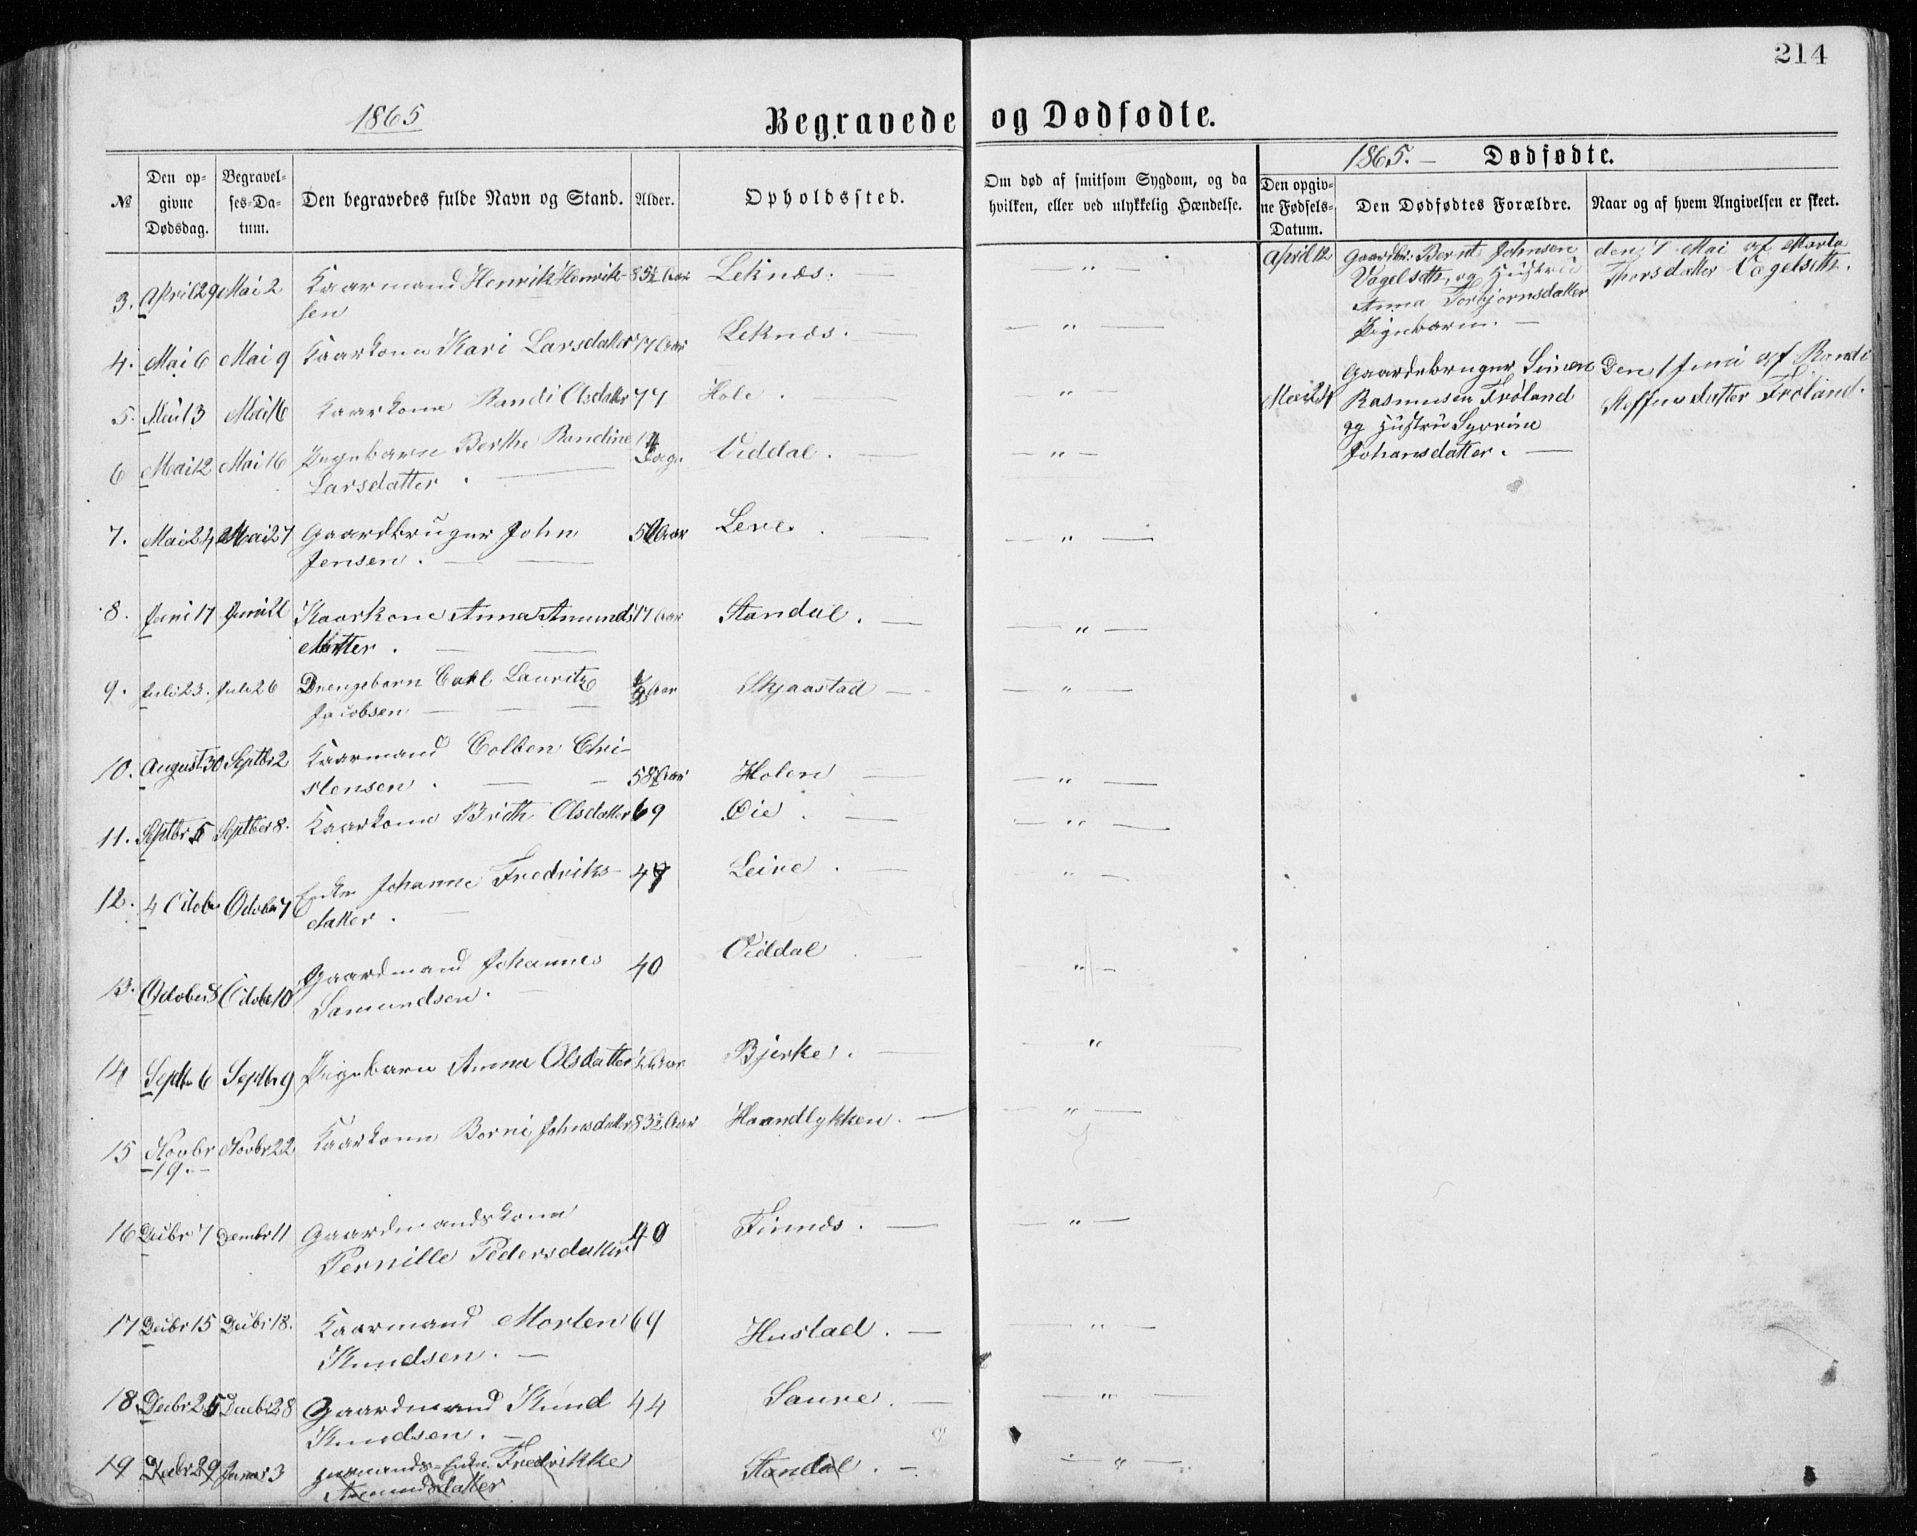 214
1865
Begravede og Dødfødte.
1865. — Dødfødte.
№ | Den opgivne Dødsdag. | Begravelses-Datum. | Den begravedes fulde Navn og Stand. | Alder. | Opholdssted. | Om død af smitsom Sygdom, og da hvilken, eller ved ulykkelig Hændelse. | Den opgivne Fødsels-Datum. | Den Dødfødtes Forældre. | Naar og af hvem Angivelsen er skeet.
3. April 29 Mai 2 Kaarmand Henrik Henrik- 83½ Aar Leknæs. — "
sen
4. Mai 6 Mai 9 Kaarkone Kari Larsdatter 77 Aar Leknæs. — "
5. Mai 13 Mai 16 Kaarkone Randi Olsdatter 77 Hole. — "
6 Mai 12 Mai 16 Pigebarn Berthe Randine 14 Dage Viddal. — "
Larsdatter. —
7. Mai 24 Mai 27 Gaardbruger John Aar Leve. — "
Jensen. —
8. Juni 17 Juni Kaarkone Anna Amunds 77 Aar Standal. — "
datter. —
9. Juli 23. Juli 26 Drengebarn Carl Lauritz Aar Skjaastad — "
Jacobsen —
10. August 30 Septbr 2 Kaarmand Colben Chri-
stensen. — 58½ Aar Holen — "
11. Septbr 5 Septber 8. Kaarkone Brith Olsdatter 69 Øie. — "
12. 4 Octob Octobr 7 Enke Johanne Fredriks- 47 Leire. — "
datter. —
13. October 8 Octobr 10 Gaardmand Johannes 40 Viddal. — "
Samundsen. —
14 Septbr 6 Septbr 9 Pigebarn Anna Olsdatter ½ Aar Bjerke. — "
15 Novbr 19. Novbr 22 Kaarkone Berni Johnsdatter 83½ Aar Haandlykken. — "
16 Decbr 7 Decmbr 11 Gaardmandskone
Pernille Pedersdatter 40 Finnes. — "
17 Decbr 15 Decbr 18. Kaarmand Morten 69 Hustad. — "
Knudsen. —
18. Decbr 25 Decbr 28 Gaardmand Knud 44 Saure. — "
Knudsen. —
19 Decbr 29 Januar 3 Enke Fredrikke Standal. — "
Amundsdatter
April 12 Gaardbr. Bernt Johnsen
Vogelseth, og Hustru
Anna Torbjørnsdatter
Pigebarn. —
den 7 Mai af Marta
Thorsdatter Vogelseth.
Mai 24 Gaardebruger Simen
Rasmusen Frøland
og Hustru Syvrine
Johansdatter. —
Den 1 Juni af Randi
Steffensdatter Frøland.